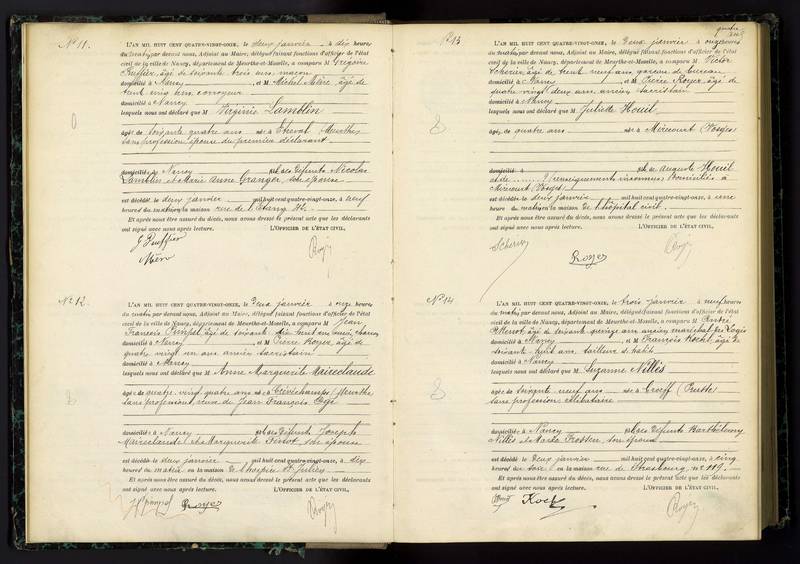 N° 11.
L'AN MIL HUIT CENT QUATRE-VINGT-ONZE, le deux janvier à dix heures
du matin, par devant nous, Adjoint au Maire, délégué faisant fonctions d'officier de l'état
civil de la ville de Nancy, département de Meurthe-et-Moselle, a comparu M Grégoire
âgé de soixante trois ans, maçon
domicilié à Nancy, et M Michel Mère, âgé de
trente cinq ans, corroyeur
domicilié à Nancy
lesquels nous ont déclaré que M Virginie Lamblin
âgée de soixante quatre ans née à Etreval (Meurthe)
sans profession, épouse du premier déclarant
domiciliée à Nancy fille des défunts Nicolas
Lamblin et Marie Anne Granger, son épouse
est décédée le deux janvier mil huit cent quatre-vingt-onze, à neuf
heures du matin en la maison rue de l'Etang
Et après nous être assuré du décès, nous avons dressé le présent acte que les déclarants
ont signé avec nous après lecture. L'OFFICIER DE L'ÉTAT CIVIL,
N° 12.
L'AN MIL HUIT CENT QUATRE-VINGT-ONZE, le deux janvier à onze heures
du matin, par devant nous, Adjoint au Maire, délégué faisant fonctions d'officier de l'état
civil de la ville de Nancy, département de Meurthe-et-Moselle, a comparu M Jean
François âgé de soixante dix huit ans
domicilié à Nancy et M Pierre Royer, âgé de
quatre vingt un ans ancien sacristain
domicilié à Nancy
lesquels nous ont déclaré que M Anne Marguerite Maireclaude
âgée de quatre vingt quatre ans née à Crévichamps (Meurthe)
sans profession, veuve de Jean François
domiciliée à Nancy fille des défunts Joseph
Maireclaude et Marguerite son épouse
est décédée le deux janvier mil huit cent quatre-vingt-onze, à dix
heures du matin en la maison de l'hospice St Julien
Et après nous être assuré du décès, nous avons dressé le présent acte que les déclarants
ont signé avec nous après lecture. L'OFFICIER DE L'ÉTAT CIVIL,
Royer
N° 13
L'AN MIL HUIT CENT QUATRE-VINGT-ONZE, le deux janvier à onze heures
du matin, par devant nous, Adjoint au Maire, délégué faisant fonctions d'officier de l'état
civil de la ville de Nancy, département de Meurthe-et-Moselle, a comparu M Victor
Scherer, âgé de trente neuf ans, garçon de bureau
domicilié à Nancy et M Pierre Royer, âgé de
quatre vingt deux ans, ancien sacristain
domicilié à Nancy
lesquels nous ont déclaré que M Juliette Houil
âgée de quatre ans née à Mirecourt (Vosges)
domiciliée fille de Auguste Houil
et de (renseignements inconnus) domiciliés à
Mirecourt (Vosges)
est décédée le deux janvier mil huit cent quatre-vingt-onze, à une
heure du matin en la maison de l'hôpital civil
Et après nous être assuré du décès, nous avons dressé le présent acte que les déclarants
ont signé avec nous après lecture. L'OFFICIER DE L'ÉTAT CIVIL,
Scherer
Royer
N° 14
L'AN MIL HUIT CENT QUATRE-VINGT-ONZE, le trois janvier à neuf heures
du matin, par devant nous, Adjoint au Maire, délégué faisant fonctions d'officier de l'état
civil de la ville de Nancy, département de Meurthe-et-Moselle, a comparu M André
âgé de soixante quinze ans, ancien maréchal des logis
domicilié à Nancy et M François Koch, âgé de
soixante huit ans, tailleur d'habits
domicilié à Nancy
lesquels nous ont déclaré que M Suzanne Nillès
âgée de soixante neuf ans née à Croeff (Prusse)
sans profession célibataire
domiciliée à Nancy fille des défunts Barthélemy
Nillès et son épouse
est décédée le deux janvier mil huit cent quatre-vingt-onze, à cinq
heures du soir en la maison rue de Strasbourg, n° 119.
Et après nous être assuré du décès, nous avons dressé le présent acte que les déclarants
ont signé avec nous après lecture. L'OFFICIER DE L'ÉTAT CIVIL,
Koch